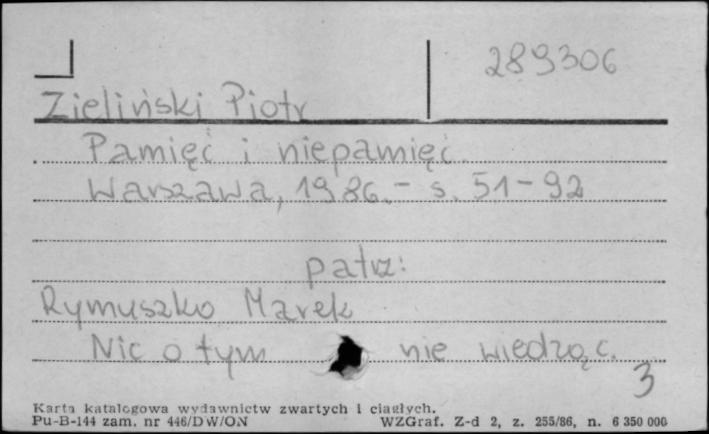 289306
Zieliński Piotr
Pamięć i niepamięć.
Warszawa, 1986.- s. 51-92
patrz:
Rymuszko Marek
Nic o tym nie wiedząc.
3
Karta katalogowa wydawnictw zwartych i ciągłych.
Pu-B-144 zam. nr 446/DW/ON WZGraf. Z-d 2, z. 255/86, n. 6 350 000